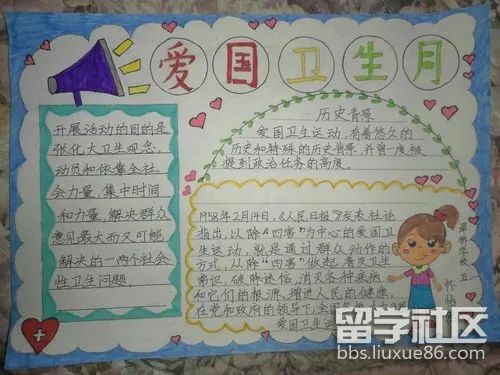 爱国卫生月
开展活动的目的是
强化大卫生观念,
动员和依靠全社
会力量,集中时间
和力量,解决群众
意见最大而又可能
解决的一两个社会
性卫生问题。
历史背景
爱国卫生运动,有着悠久的
历史和特殊的历史背景,并曾一度被
提到政治任务的高度。
1958年2月14日,《人民日报》发表社论
指出,以除“四害”为中心的爱国卫
生运动,就是通过群众动作的
方式,从除“四害”做起,普及卫生
常识,破除迷信,消灭各种疾病
和它们的根源,增进人民的健康,
在党和政府的领导下,全国
爱国卫生运
留学社区
bbs.liuxue86.com